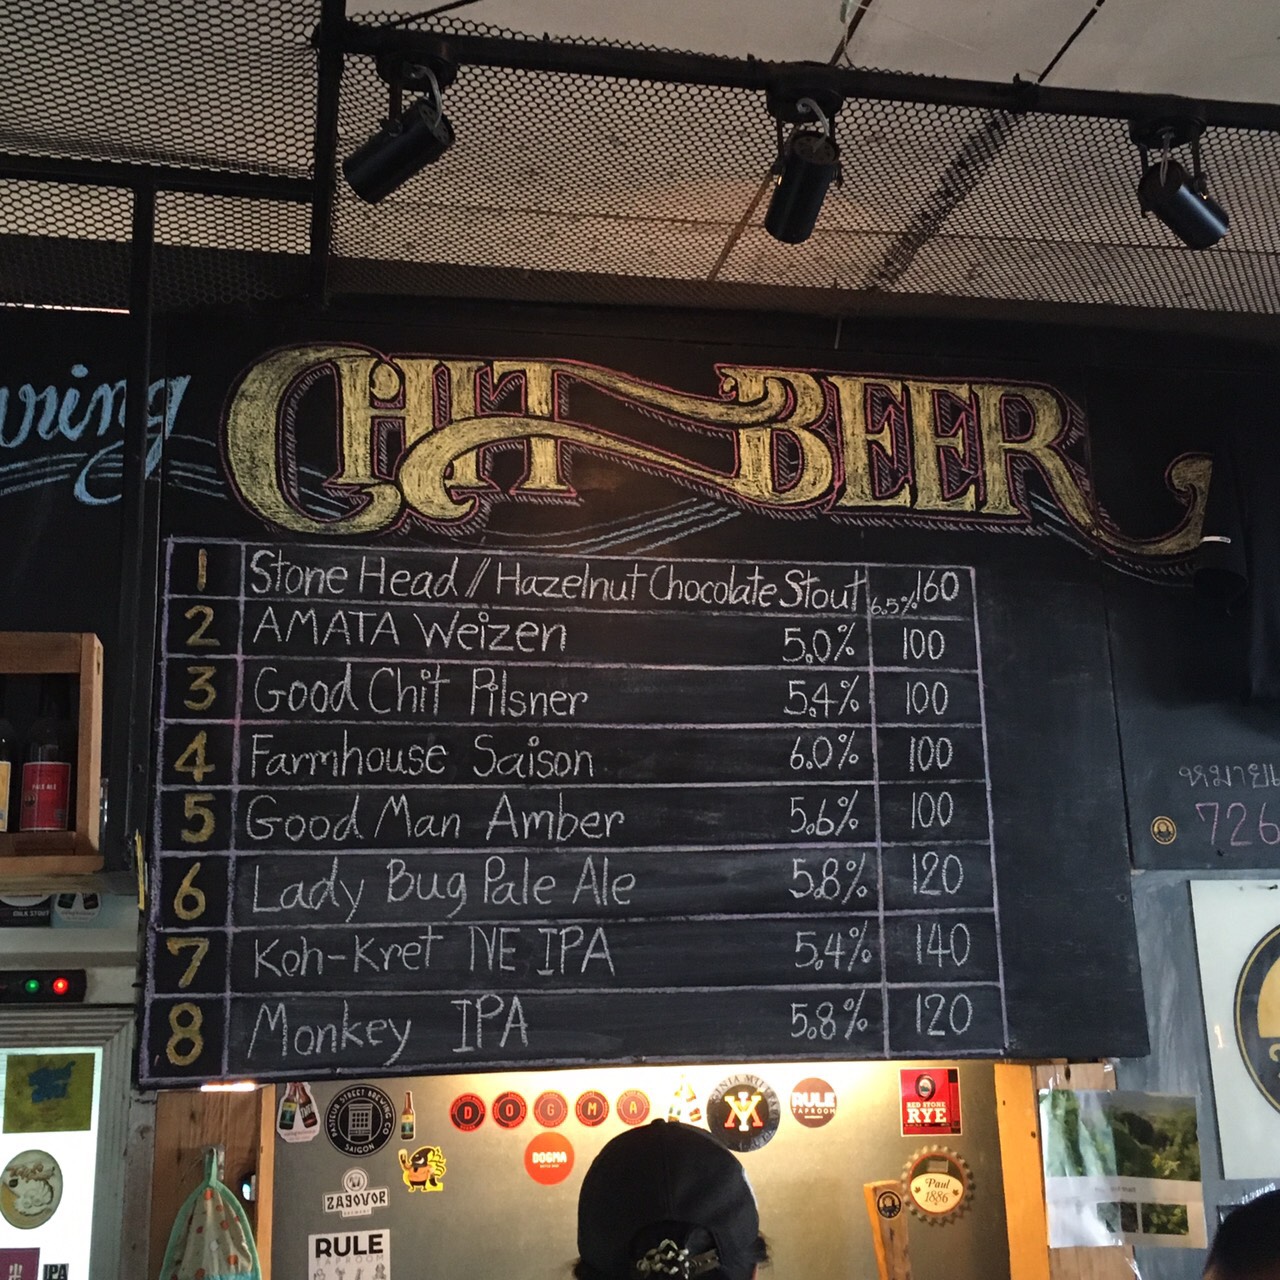 CHIT BEER
1 Stone Head // Hazelnut Chocolate Stout 6.5% 160
2 AMATA Weizen 5.0% 100
3 Good Chit Pilsner 5.4% 100
4 Farmhouse Saison 6.0% 100
5 Good Man Amber 5.6% 100
6 Lady Bug Pale Ale 5.8% 120
7 Koh-Kret NE IPA 5.4% 140
8 Monkey IPA 5.8% 120
PALE ALE
726
PASTEUR STREET BREWING CO
SAIGON
DOGMA
DOGMA
RULE
TAPROOM
RED STONE
RYE
Paul
1886
ZAGOVOR
BREWERY
RULE
TAPROOM
IPA